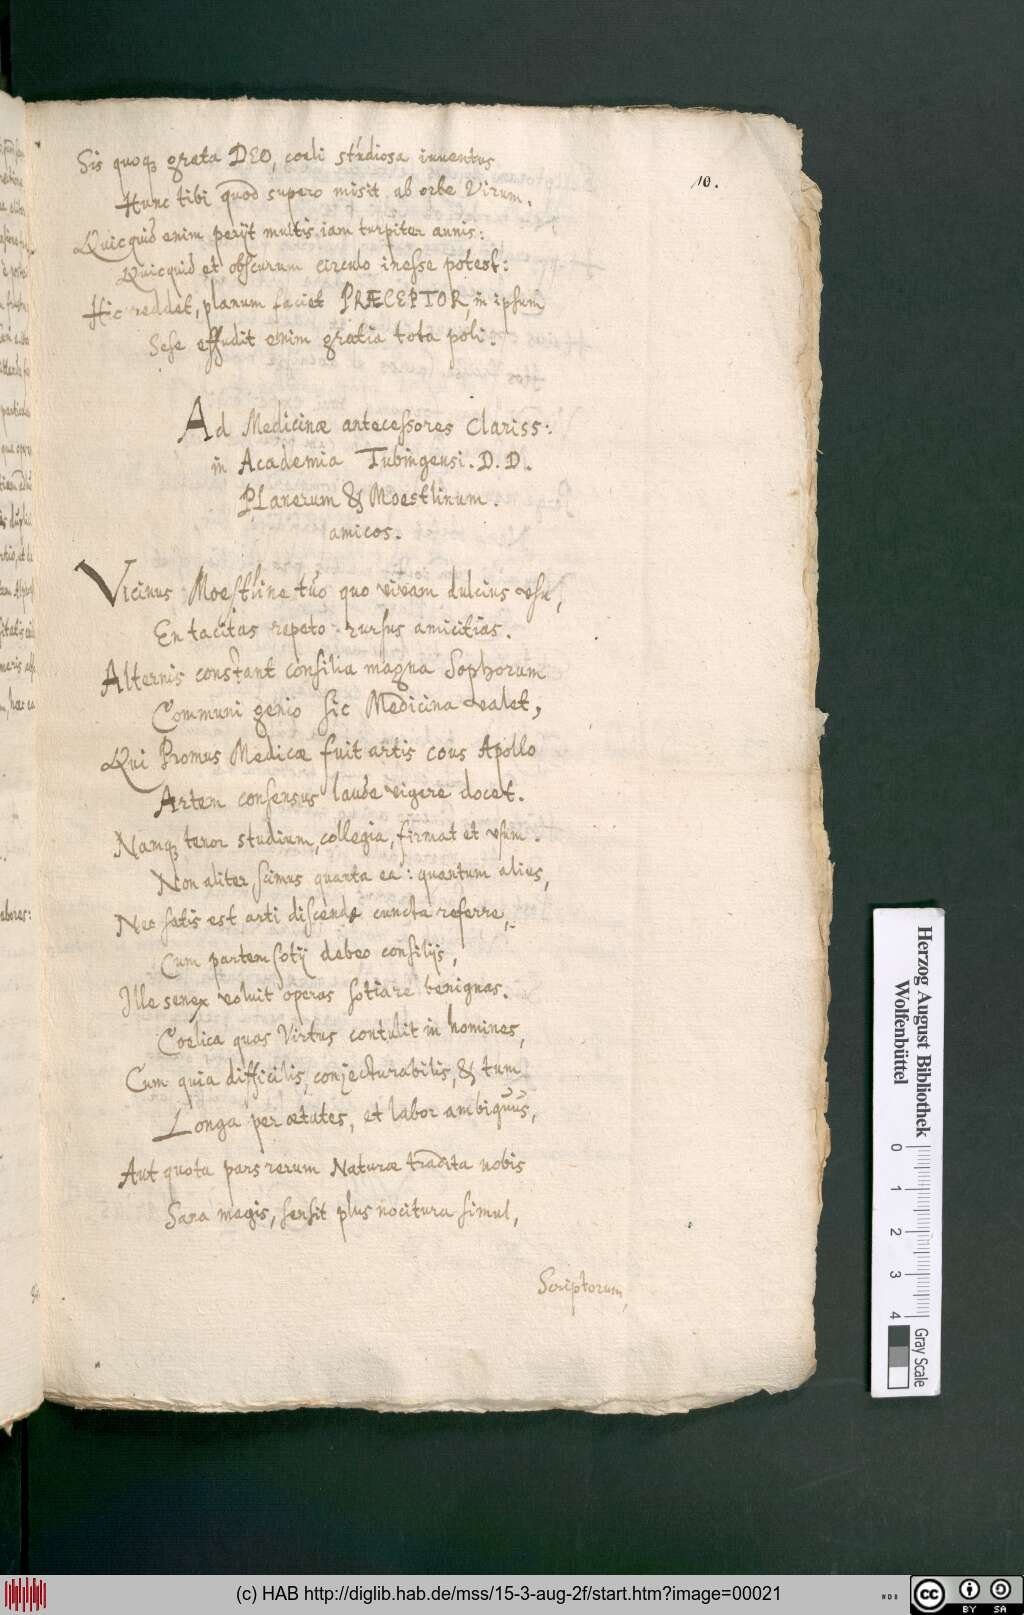 10.
Sis quoq; grata DEO, coeli studiosa iuventus
Hunc tibi quod supero misit ab orbe Virum.
Quicquid enim perijt multis iam turpiter annis:
Quicquid et obscurum circulo inesse potest:
Hic reddet, planum faciet PRÆCEPTOR, in ipsum
Sese effudit enim gratia tota poli.
Ad Medicinæ antecessores Clariss:
in Academia Tubingensi. D. D.
PLanerum & Moestlinum.
amicos.
Vicinus Moestline tuo quo vivam dulcius usu,
En tacitas repeto rursus amicitias.
Alternis constant consilia magna Sophorum
Communi genio sic Medicina valet,
Qui Promus Medicæ fuit artis cous Apollo
Artem consensus laude vigere docet.
Namq; tenor studium, collegia, firmat et usum.
Non aliter scimus quanta ea: quantum alies,
Nec satis est arti discendo cuncta referre,
Cum partem sotij debeo consilijs,
Ille senex voluit operas sotiare benignas.
Coelica quas Virtus contulit in homines,
Cum quia difficilis, conjecturabilis, & tum
Longa per ætates, et labor ambiguus,
Aut quota pars rerum Naturæ tradita nobis
Sana magis, sensit plus nocitura simul,
Scriptorum,
labores:
Herzog August Bibliothek
Wolfenbüttel
0 1 2 3 4
Gray Scale
(c) HAB http://diglib.hab.de/mss/15-3-aug-2f/start.htm?image=00021
WDB
cc BY SA